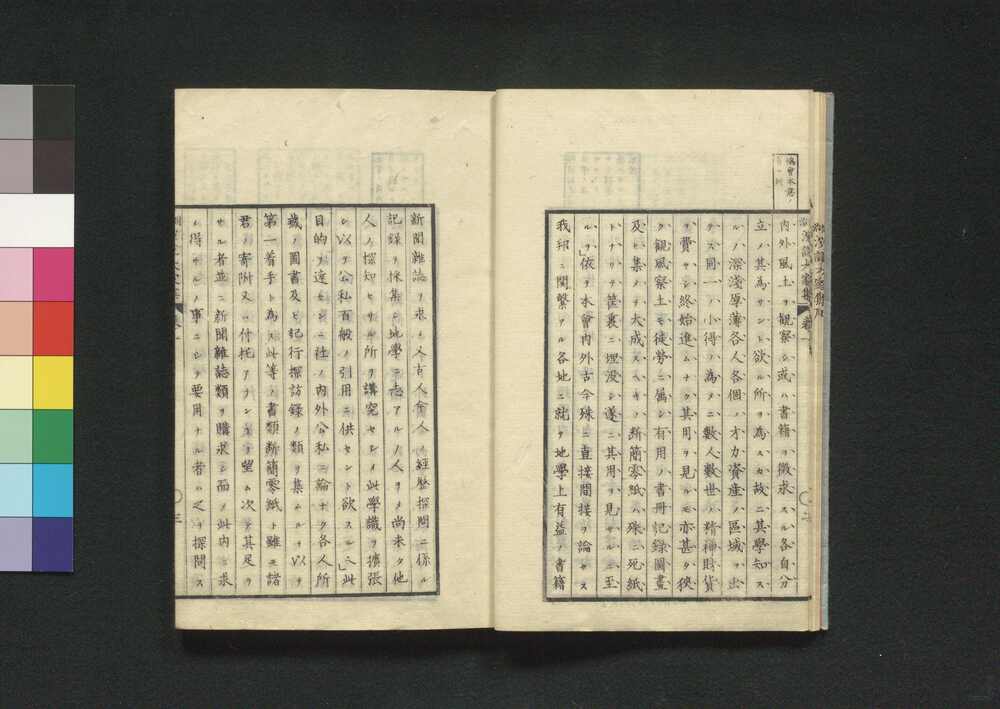 協會本意ノ
内外風土ヲ観察シ或ハ書籍ヲ徴求スル各自分
立ノ其為サント欲ル所ヲ為スカ故ニ其學知ス
ルノ深淺厚薄各人各個ノ才力資産ノ區域ヲ出
テス同一ノ小得ノ為メニ數人數世ノ精神財貨
ヲ費ヤシ終始進ムナク其用ヲ見ルモ亦甚タ狭
ク観風察土モ徒勞ニ属シ有用ノ書冊記録圖畫
及ヒ集メテ大成スヘキノ断簡零紙ハ殊ニ死紙
トナリテ筐裏ニ埋没シ遂ニ其用ヲ見サルニ至
ル」依テ本會内外古今殊ニ直接間接ヲ論セス
我邦ニ関繋アル各地ニ就テ地學上有益ノ書籍
新聞雜誌ヲ求メ又古人今人ノ經歴探聞ニ係ル
記録ヲ採集シ地學ニ志アルノ人ヲメ尚未タ他
人ノ探知セサル所ヲ講究セシメ此學識ヲ擴張
シ以テ公私百般ノ引用ニ供セント欲スル」此
目的ヲ達センニ社ノ内外公私ニ論ナク各人所
藏ノ圖書及ヒ記行探訪録ノ類ヲ集ムルヲ以テ
第一着手ト為ス此等ノ書類断簡零紙ト雖モ諸
君ノ寄附又ハ付托アランヲ望ム次テ其足ラ
サル者並ニ新聞雜誌類ヲ購求シ而メ此内ニ求
メ得サルノ事ニシテ要用ナル者ハ之ヲ探問ス